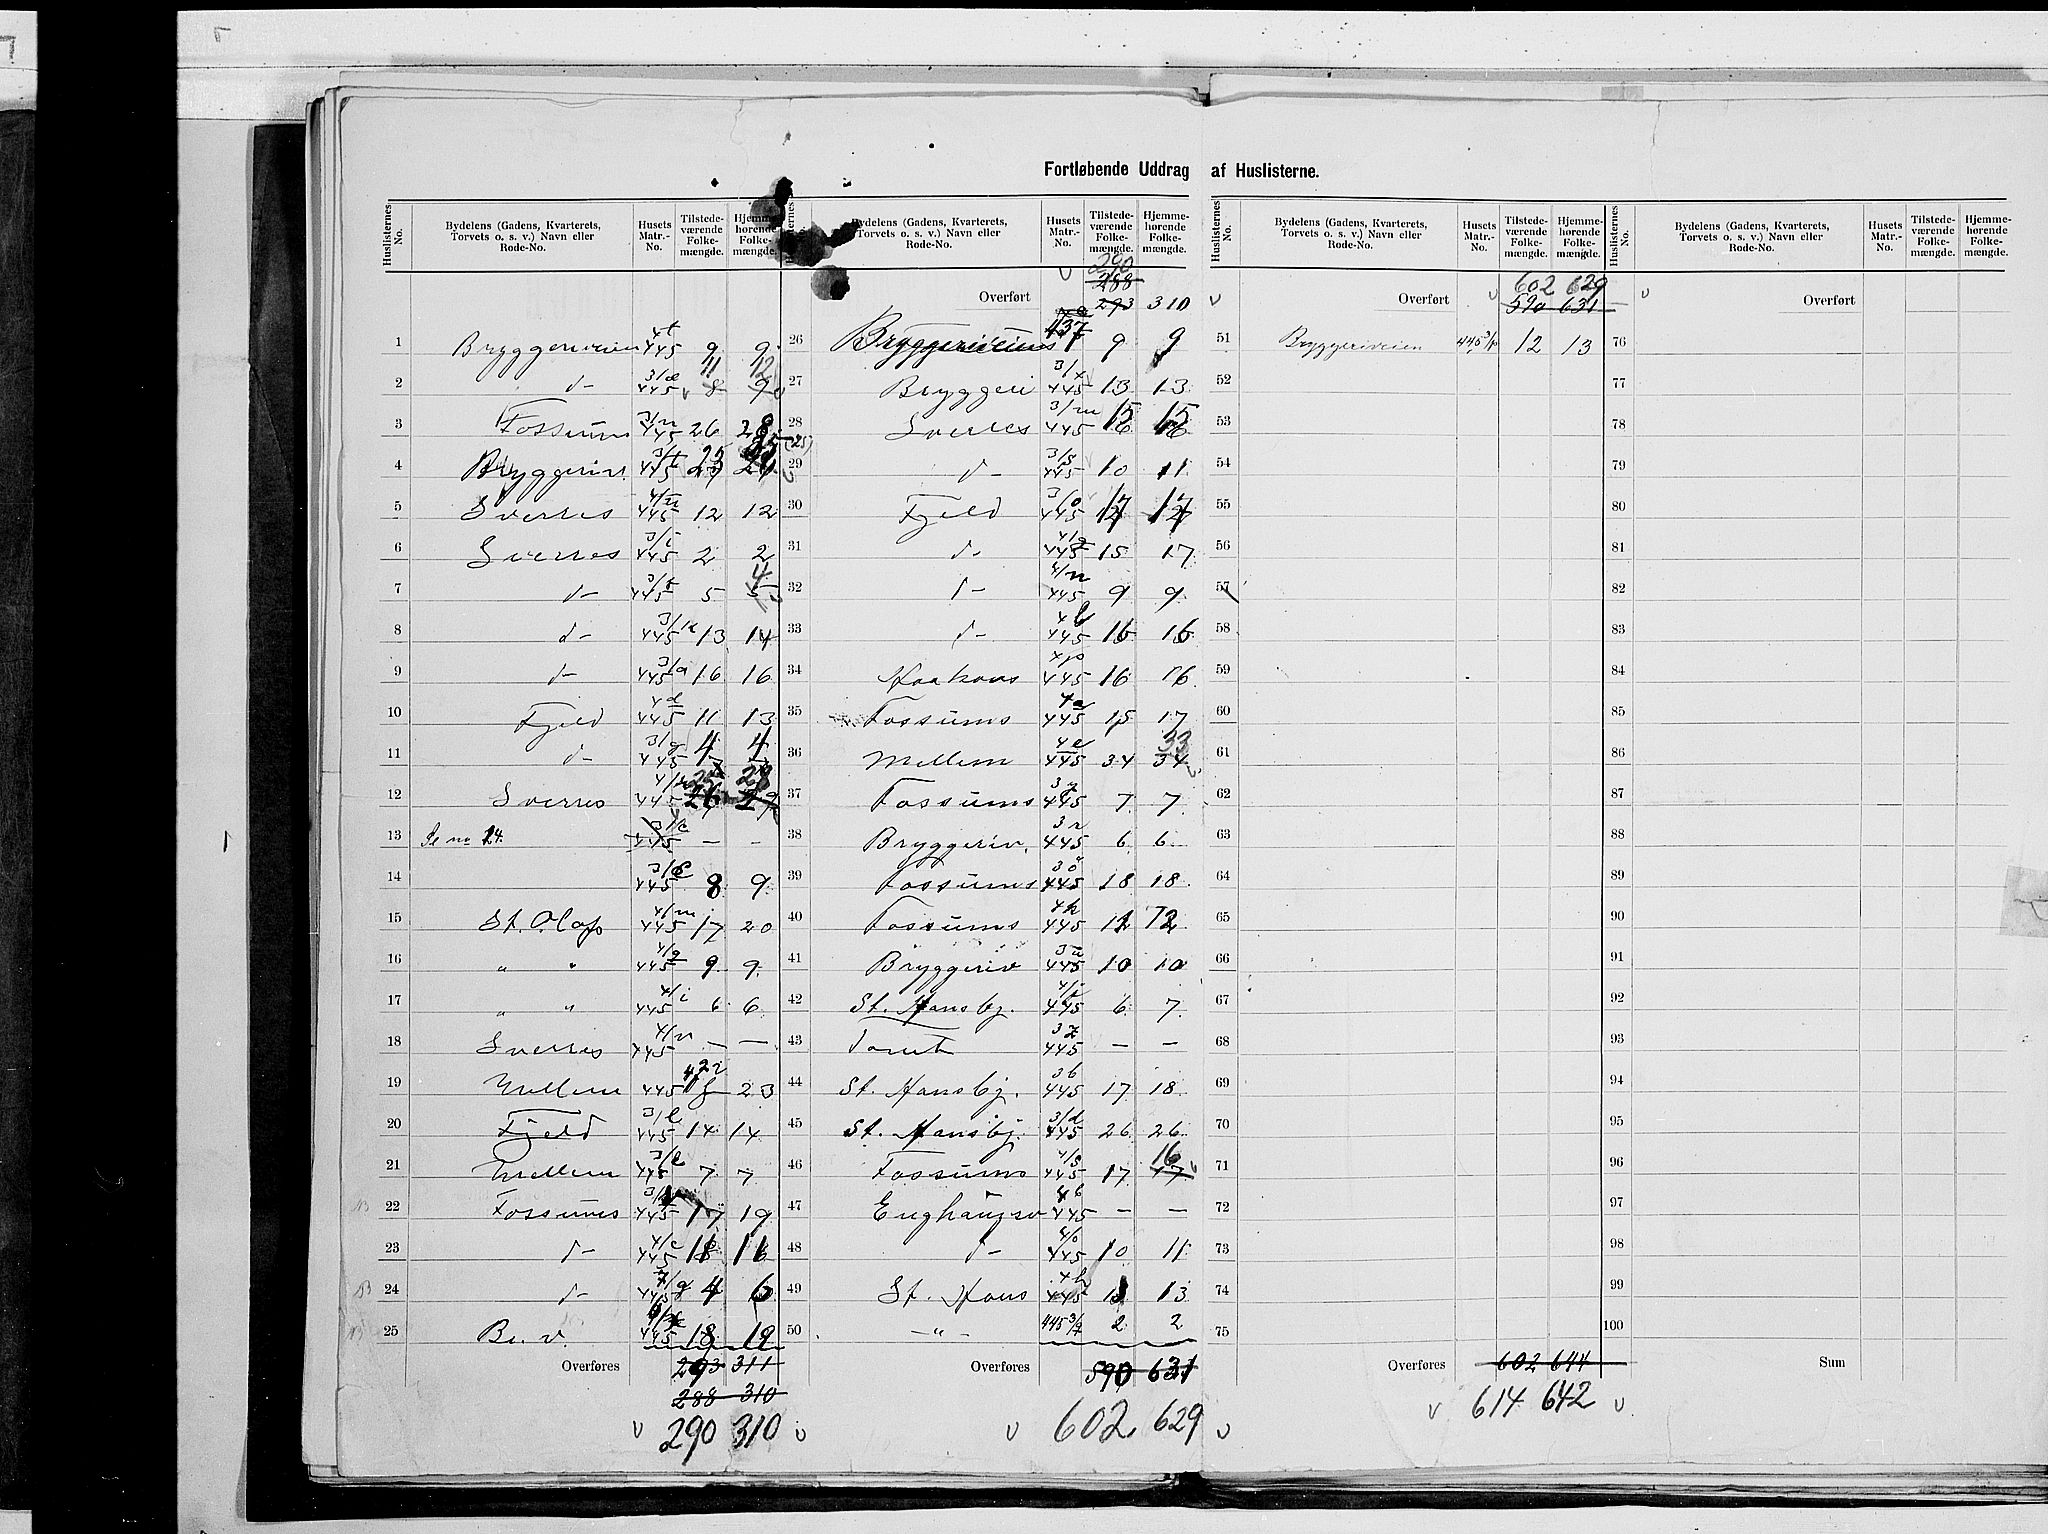 Fortløbende Uddrag af Huslisterne.
Huslisternes No. Bydelens (Gadens, Kvarterets, Torvets o. s. v.) Navn eller Rode-No. Husets Matr.-No. Tilstedeværende Folkemængde. Hjemmehørende Folkemængde.
1 Bryggeriveien 4t 445 9 9
2 d- 445 11 8 12 9
3 Fossum 445 26 28
4 Bryggeriv. 445 25
5 Sverres 445 12 12
6 Sverres 3/i 445 2 2
7 d- 445 5 4 5
8 d- 3/k 445 13 14
9 d- 3/a 445 16 16
10 Fjeld 4d 445 11 13
11 d- 3/g 445 4 4
12 Sverres 445 28
13 Se no 14. 445 — -
14 445 8 9
15 St. Olafs 4/m 445 17 20
16 " " 445 9 9
17 " " 4/i 445 6 6
18 Sverres 4/n 445 — —
19 Mellem 445 22 23
20 Fjeld 3/l 445 14 14
21 Mellem 445 7 7
22 Fossums 445 17 19
23 d- 4/c 445 18
24 d- 445 4 6
25 Br. v. 445 18 19
Overføres 293 311
288 310
290 310
Huslisternes No. Bydelens (Gadens, Kvarterets, Torvets o. s. v.) Navn eller Rode-No. Husets Matr.-No. Tilstedeværende Folkemængde. Hjemmehørende Folkemængde.
290
288
Overført 293 310
26 Bryggeriveiens 437 9 9
27 Bryggeri 445 13 13
28 Sverres 3/m 445 15 15
29 d- 3/s 445 10 11
30 Fjeld 3/o 445 17 17
31 d- 445 15 17
32 d- 4/n 445 9 9
33 d- 445 16 16
34 Haakons 4p 445 16 16
35 Fossums 4a 445 15 17
36 Mellem 4e 445 34 33 34
37 Fossums 445 7 7
38 Bryggeriv. 3r 445 6 6
39 Fossums 445 18 18
40 Fossums 4k 445 12 12
41 Bryggeriv 445 10 10
42 St. Hansbj. 445 6 7
43 Tomt 445 — —
44 St. Hansbj. 3b 445 17 18
45 St. Hansbj. 3/d 445 26 26
46 Fossums 4/s 445 17 16 17
47 Enghaugsv 445 — —
48 d- 445 10 11
49 St. Hans 4h 445 13 13
50 - " - 445 2 2
Overføres 590 631
602 629
Huslisternes No. Bydelens (Gadens, Kvarterets, Torvets o. s. v.) Navn eller Rode-No. Husets Matr.-No. Tilstedeværende Folkemængde. Hjemmehørende Folkemængde.
602 629
Overført 590 631
51 Bryggeriveien 445 12 13
52
53
54
55
56
57
58
59
60
61
62
63
64
65
66
67
68
69
70
71
72
73
74
75
Overføres 602 644
614 642
Huslisternes No. Bydelens (Gadens, Kvarterets, Torvets o. s. v.) Navn eller Rode-No. Husets Matr.-No. Tilstedeværende Folkemængde. Hjemmehørende Folkemængde.
Overført
76
77
78
79
80
81
82
83
84
85
86
87
88
89
90
91
92
93
94
95
96
97
98
99
100
Sum